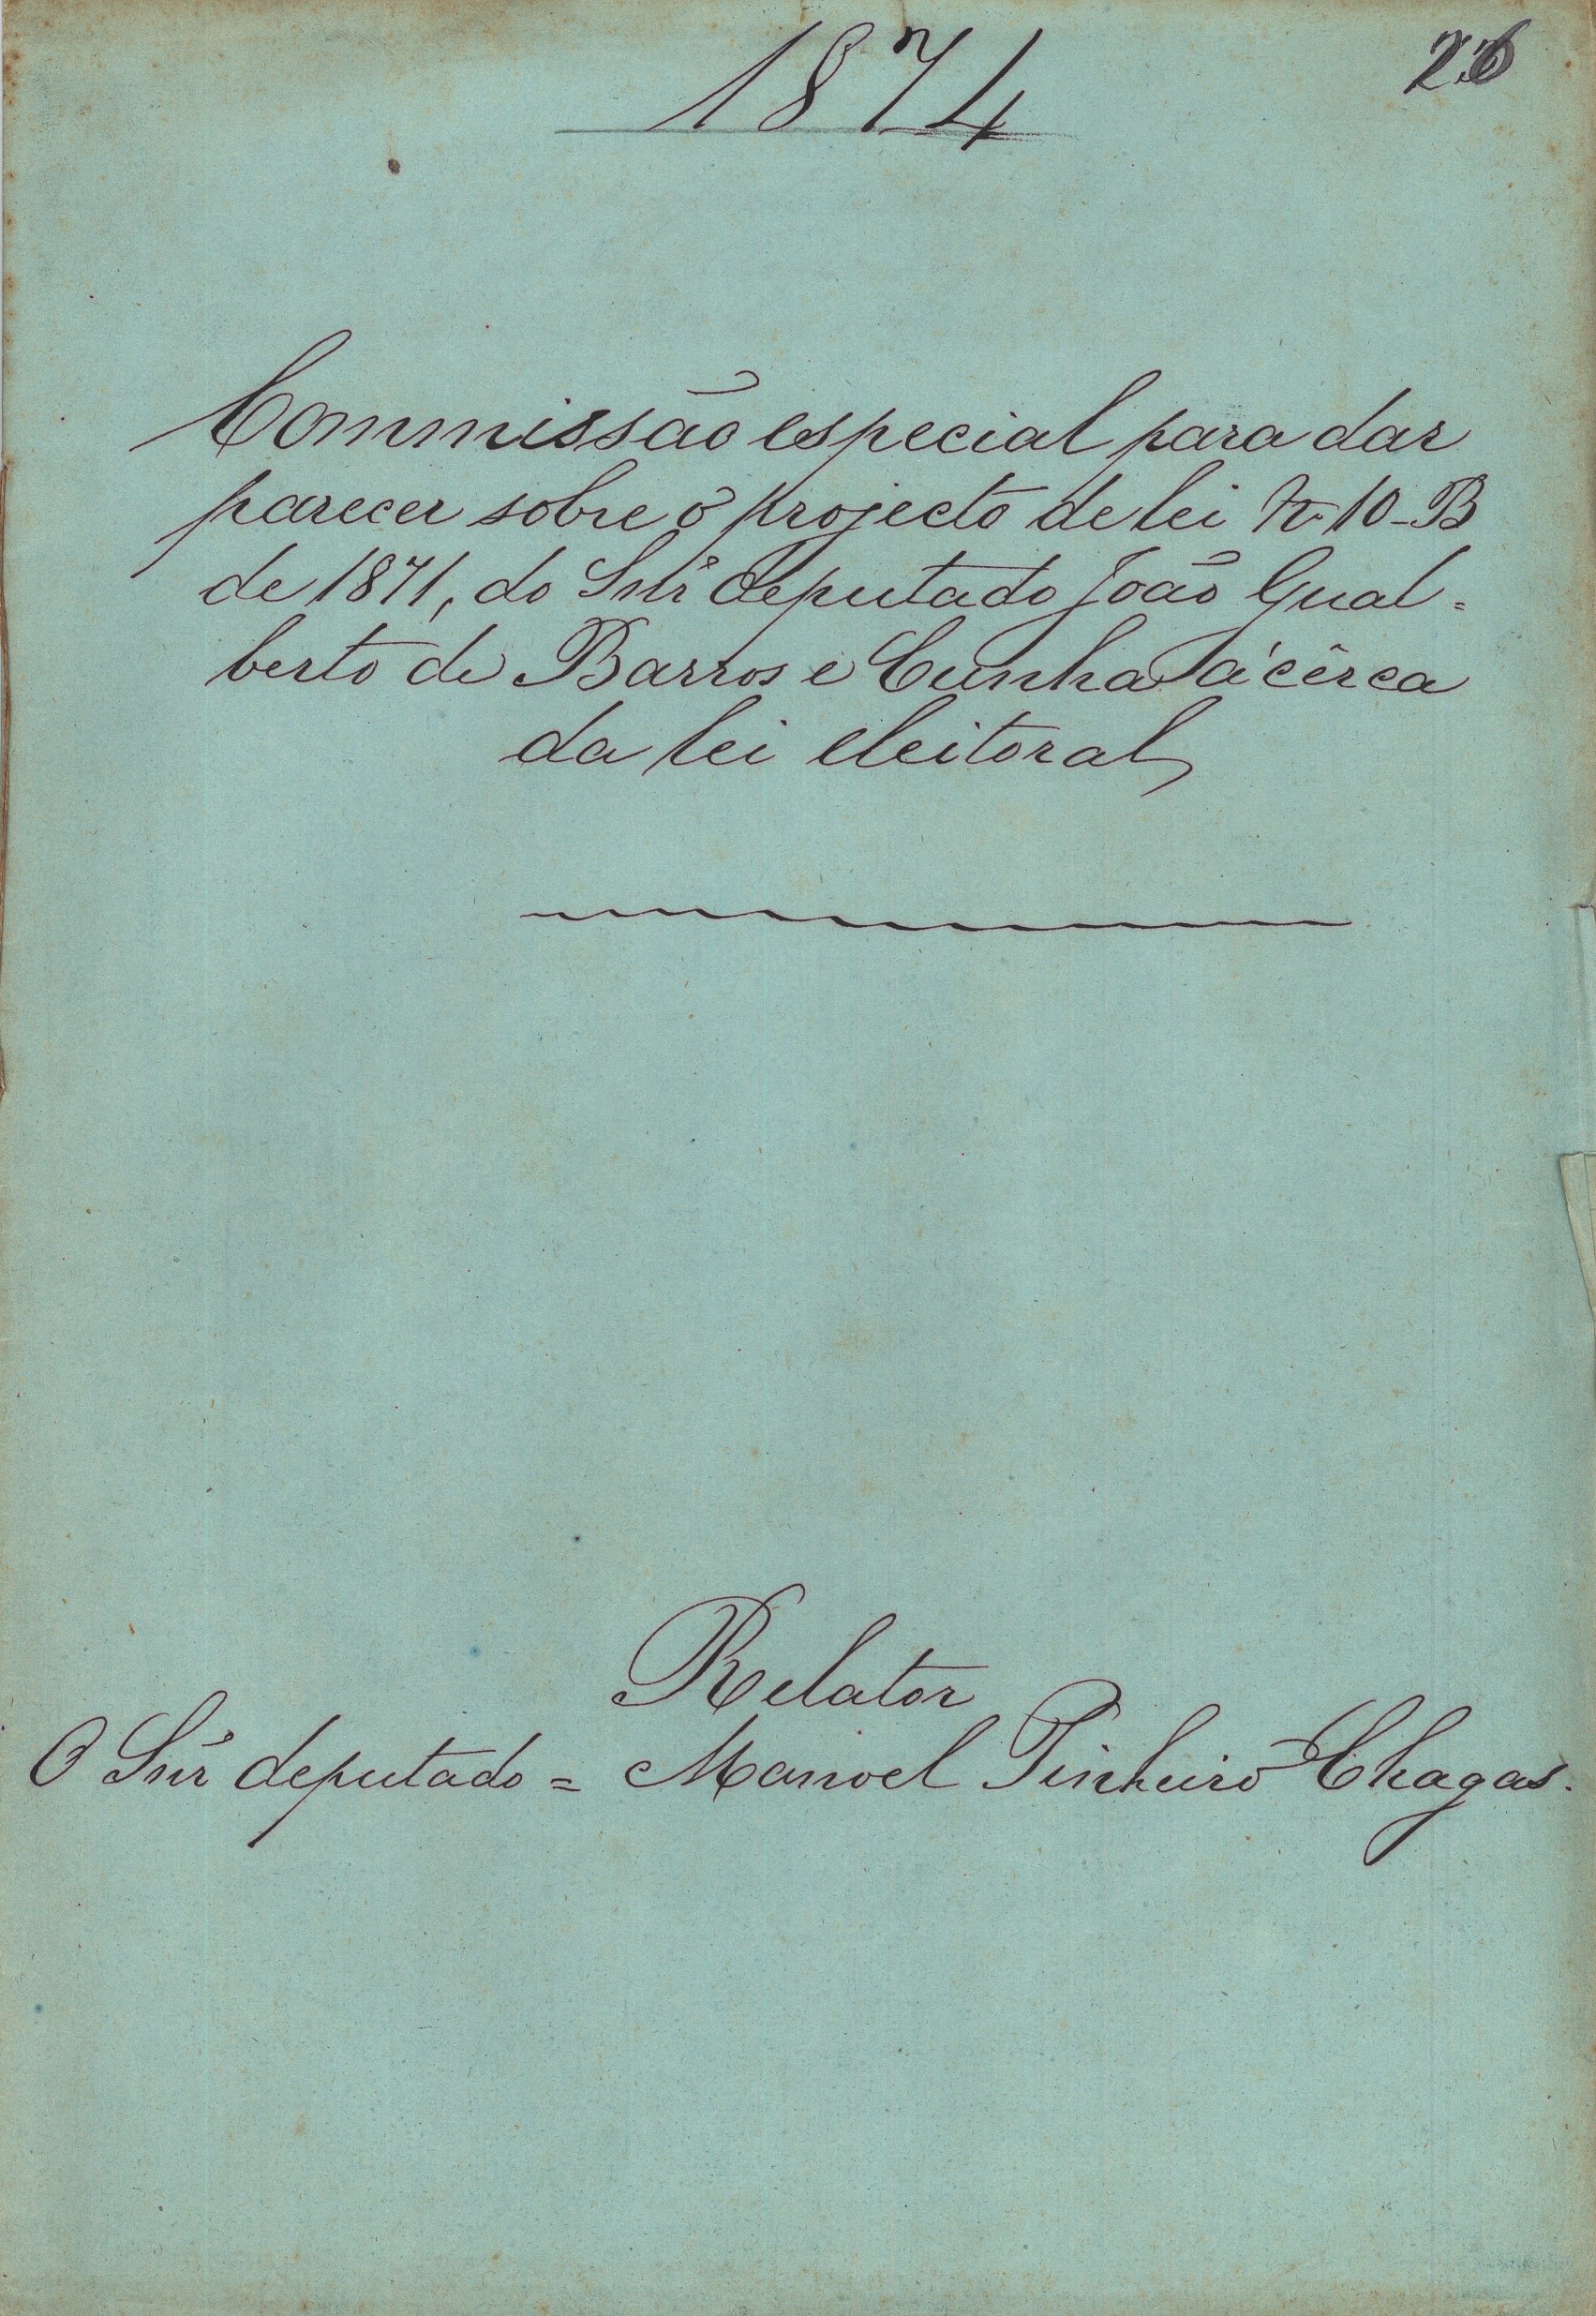 1874
26
Commissão especial para dar
parecer sobre o projecto de lei n.º 10-B
de 1871, do Snr deputado João Gual-
berto de Barros e Cunha ácêrca
da lei eleitoral
Relator
O Snr deputado = Manoel Pinheiro Chagas.